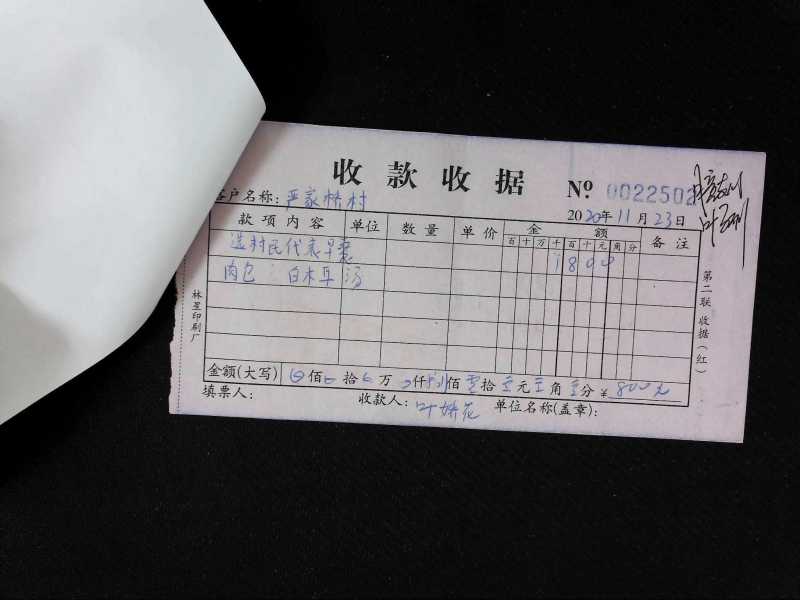 收款收据
№ 0022502
客户名称: 严家桥村
2020年11月23日
款项内容 单位 数量 单价 金额 备注
百 十 万 千 百 十 元 角 分
选村民代表早餐 1800
肉包 白木耳汤
金额(大写) 佰 拾 万 仟 捌佰 零拾 零元 零角 零分 ¥ 800元
填票人: 收款人: 叶 花 单位名称(盖章):
第二联 收据(红)
林星印刷厂